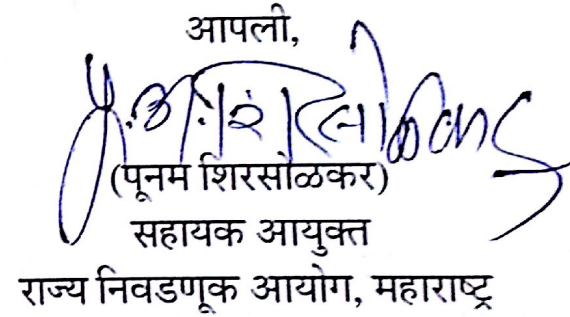 आपली,
(पूनम शिरसोळकर)
सहायक आयुक्त
राज्य निवडणूक आयोग, महाराष्ट्र